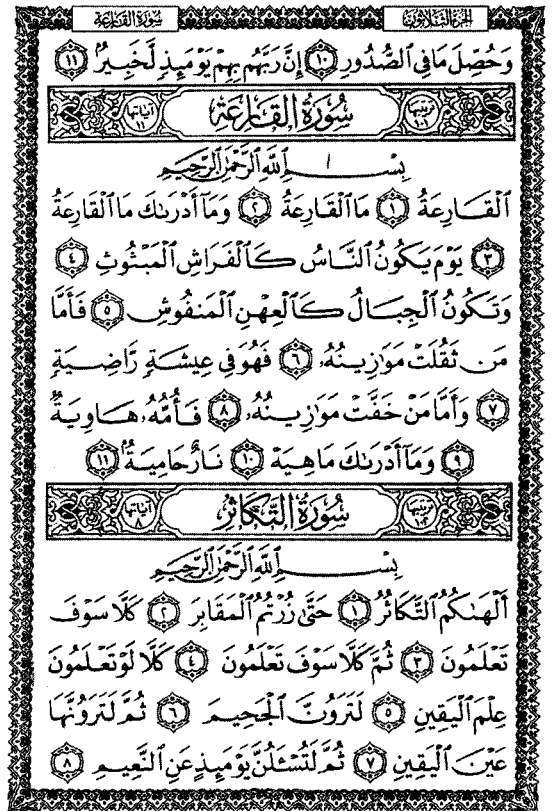 سُورَةُ القَارِعَة الجُزْءُ الثَّلَاثُونَ
وَحُصِّلَ مَا فِي ٱلصُّدُورِ ١٠ إِنَّ رَبَّهُم بِهِمْ يَوْمَئِذٍ لَّخَبِيرٌ ١١
ترتيبها ١٠١ سُورَةُ القَارِعَةِ آياتها ١١
بِسْمِ ٱللَّهِ ٱلرَّحْمَٰنِ ٱلرَّحِيمِ
ٱلْقَارِعَةُ ١ مَا ٱلْقَارِعَةُ ٢ وَمَآ أَدْرَىٰكَ مَا ٱلْقَارِعَةُ
٣ يَوْمَ يَكُونُ ٱلنَّاسُ كَٱلْفَرَاشِ ٱلْمَبْثُوثِ ٤
وَتَكُونُ ٱلْجِبَالُ كَٱلْعِهْنِ ٱلْمَنفُوشِ ٥ فَأَمَّا
مَن ثَقُلَتْ مَوَٰزِينُهُۥ ٦ فَهُوَ فِي عِيشَةٍ رَّاضِيَةٍ
٧ وَأَمَّا مَنْ خَفَّتْ مَوَٰزِينُهُۥ ٨ فَأُمُّهُۥ هَاوِيَةٌ
٩ وَمَآ أَدْرَىٰكَ مَا هِيَهْ ١٠ نَارٌ حَامِيَةٌ ١١
ترتيبها ١٠٢ سُورَةُ التَّكَاثُرِ آياتها ٨
بِسْمِ ٱللَّهِ ٱلرَّحْمَٰنِ ٱلرَّحِيمِ
أَلْهَىٰكُمُ ٱلتَّكَاثُرُ ١ حَتَّىٰ زُرْتُمُ ٱلْمَقَابِرَ ٢ كَلَّا سَوْفَ
تَعْلَمُونَ ٣ ثُمَّ كَلَّا سَوْفَ تَعْلَمُونَ ٤ كَلَّا لَوْ تَعْلَمُونَ
عِلْمَ ٱلْيَقِينِ ٥ لَتَرَوُنَّ ٱلْجَحِيمَ ٦ ثُمَّ لَتَرَوُنَّهَا
عَيْنَ ٱلْيَقِينِ ٧ ثُمَّ لَتُسْـَٔلُنَّ يَوْمَئِذٍ عَنِ ٱلنَّعِيمِ ٨